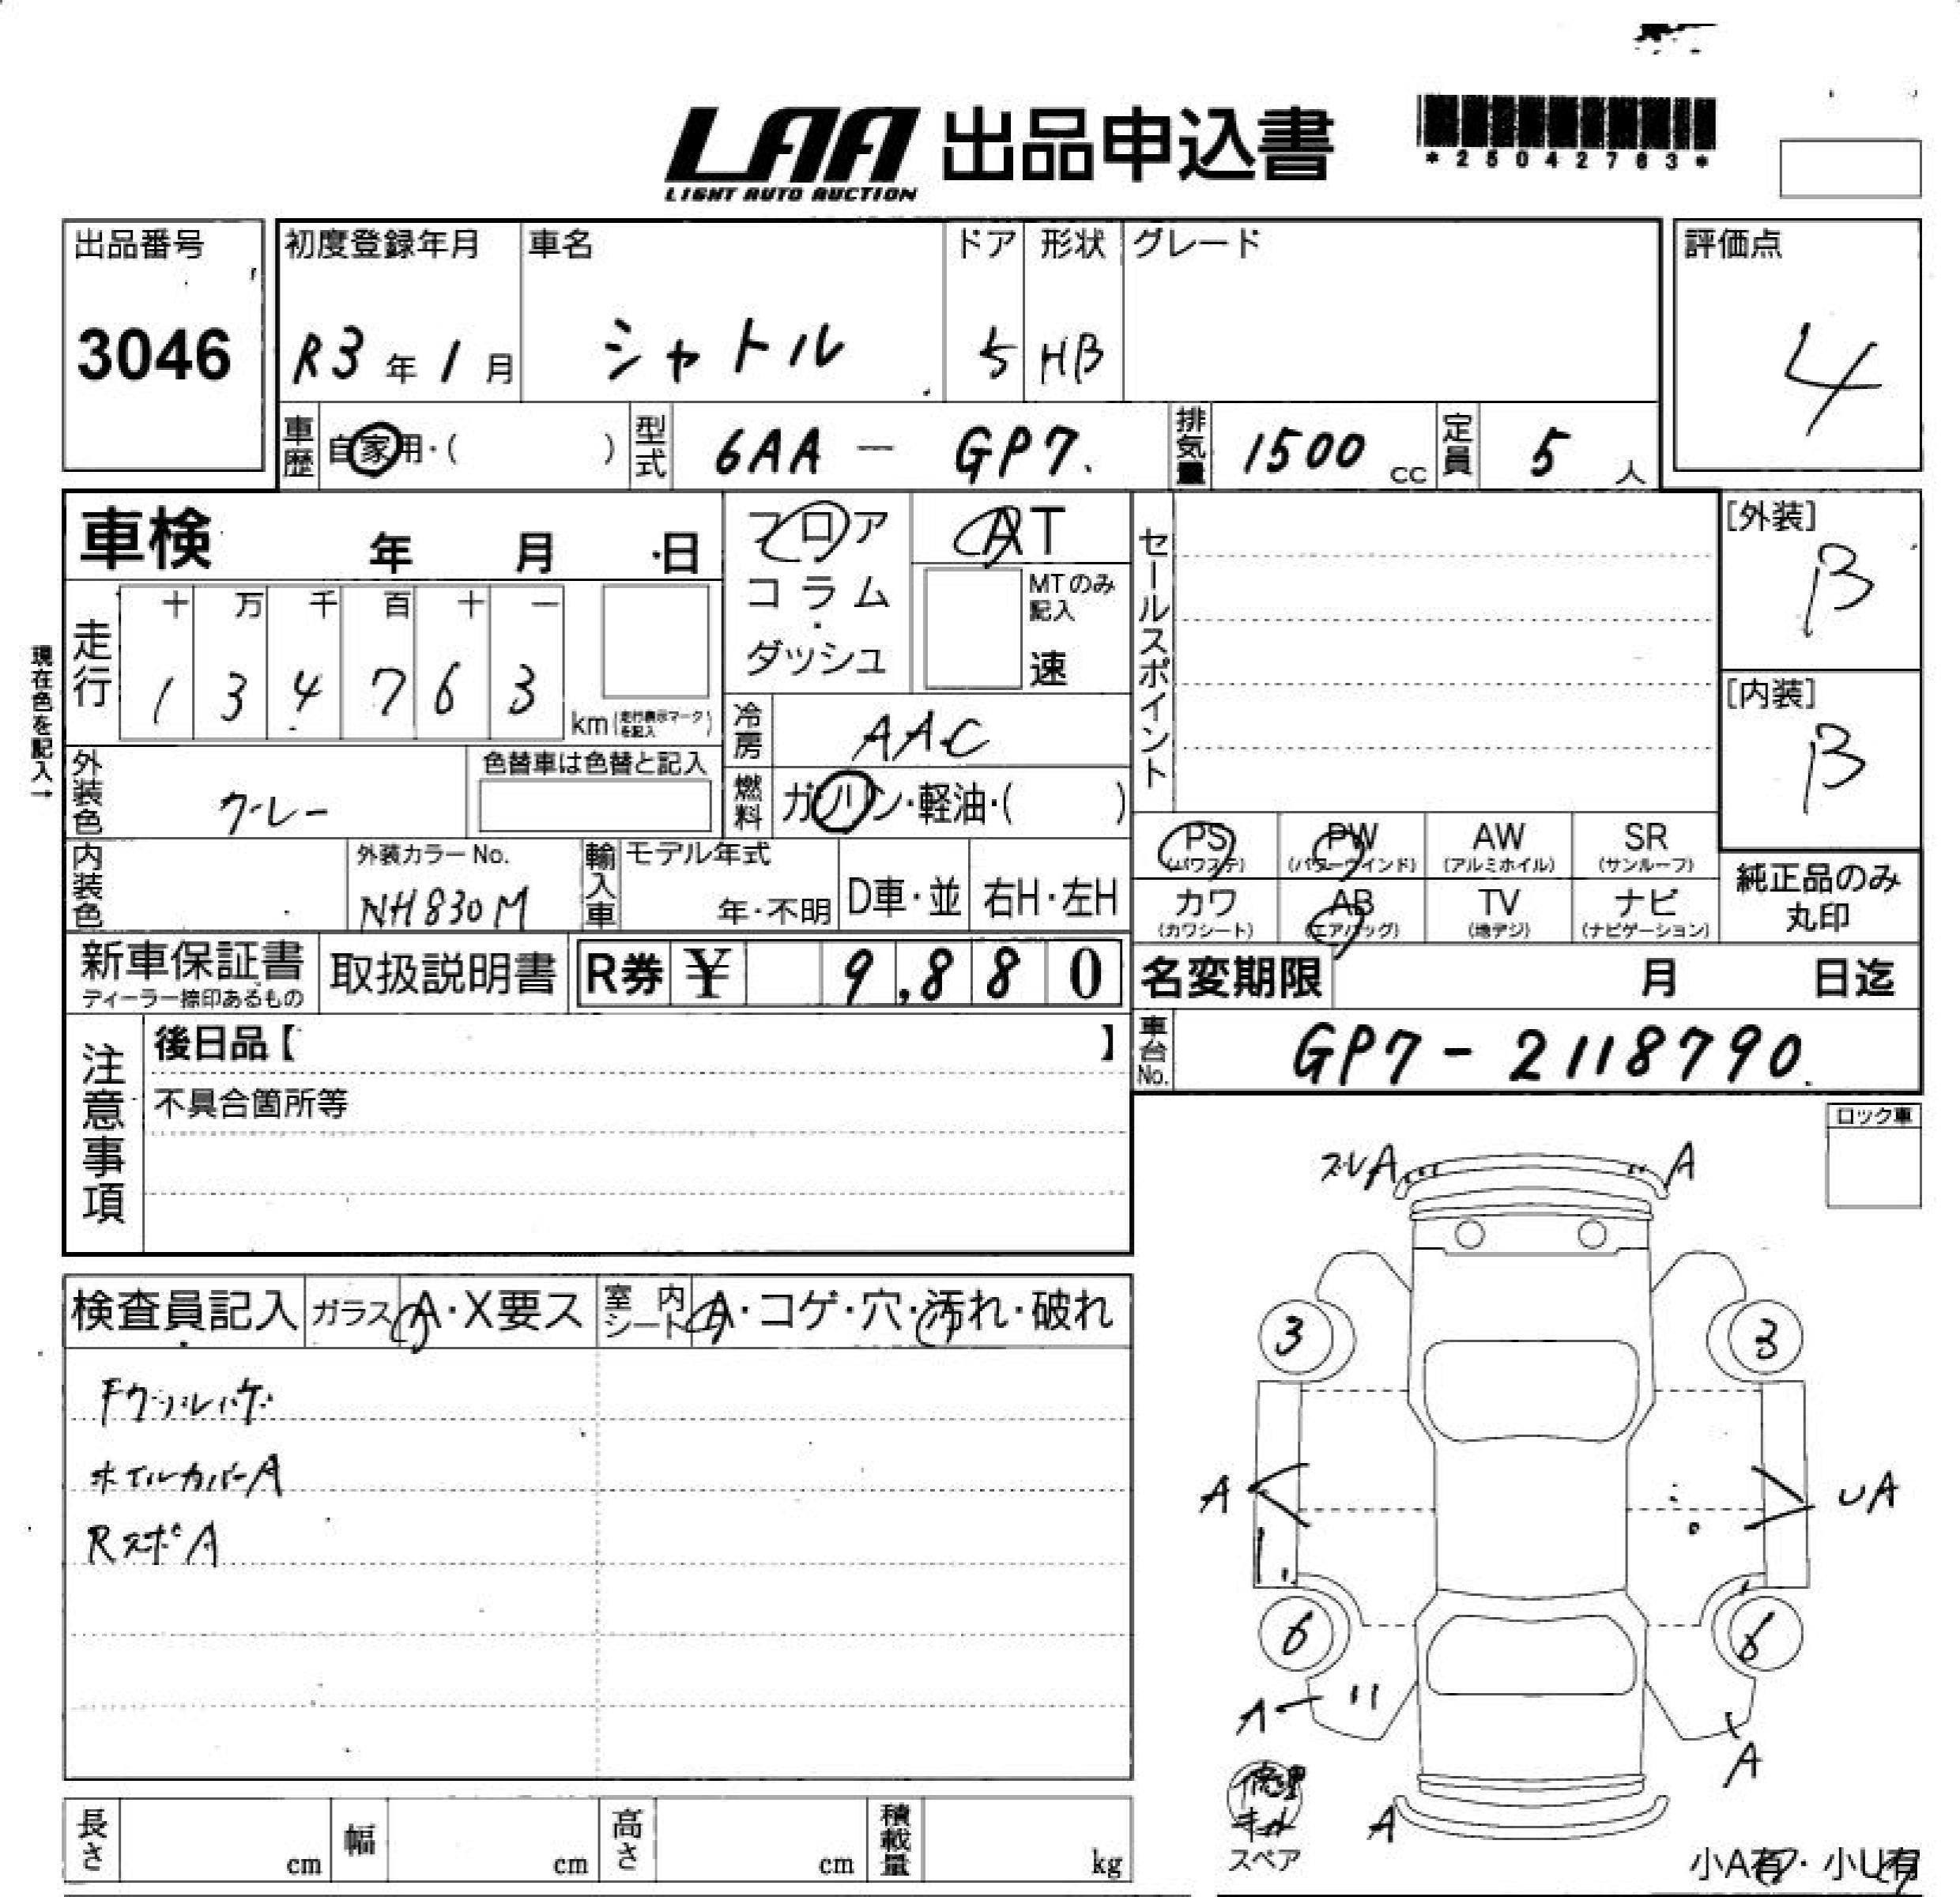 LAA 出品申込書
LIGHT AUTO AUCTION
*25042763*
出品番号
3046
初度登録年月
R3年1月
車名
シャトル
ドア
5
形状
HB
グレード
評価点
4
車歴 自家用・( )
型式 6AA - GP7.
排気量 1500 cc
定員 5 人
車検 年 月 日
フロア
コラム
ダッシュ
AT
MTのみ記入
速
セールスポイント
[外装]
B
[内装]
B
現在色を記入→
走行
十 万 千 百 十 一
1 3 4 7 6 3
km (走行表示マークを記入)
冷房 AAC
外装色 グレー
色替車は色替と記入
燃料 ガソリン・軽油・( )
内装色
外装カラーNo.
NH830M
輸入車
モデル年式
年・不明
D車・並
右H・左H
PS (パワステ)
PW (パワーウインド)
AW (アルミホイル)
SR (サンルーフ)
カワ (カワシート)
AB (エアバッグ)
TV (地デジ)
ナビ (ナビゲーション)
純正品のみ
丸印
新車保証書
ディーラー捺印あるもの
取扱説明書
R券 ¥ 9,880
名変期限 月 日迄
注意事項
後日品【 】
不具合箇所等
車台No. GP7-2118790.
ロック車
検査員記入
ガラス A・X要ス
室内シート A・コゲ・穴・汚れ・破れ
ホイルカバーA
RスポA
ズレA
A
3
3
A
UA
6
6
A
A
A
修理キット
スペア
小A有・小U有
長さ cm
幅 cm
高さ cm
積載量 kg